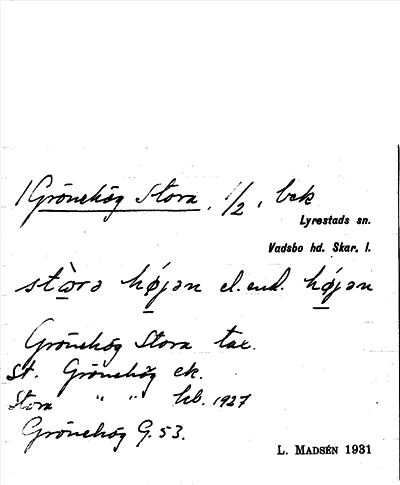 Grönehög Stora, 1/2, bek
Lyrestads sn.
Vadsbo hd. Skar. l.
stò̱rə hǿ̱jən el. end. hǿ̱jən
Grönehög Stora tax.
St. Grönehög ek.
Stora " " kb. 1927
Grönehög G. 53.
L. MADSÉN 1931